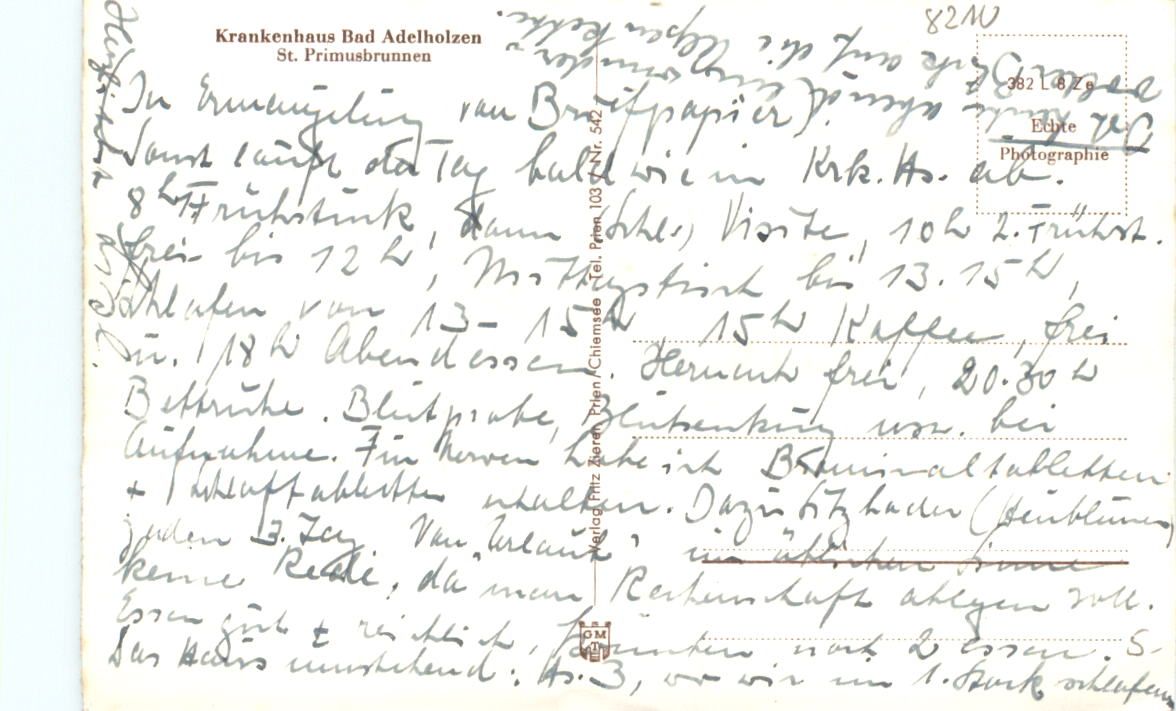 Krankenhaus Bad Adelholzen
St. Primusbrunnen
8210
382 L 8 Ze
Echte
Photographie
In Ermangelung von Briefpapier!
Sonst läuft der Tag bald wie im Krk. Hs. ab.
8h Frühstück, dann (Schl.) Visite, 10h 2. Frühst.
frei bis 12h, Mittagstisch bis 13.15h,
Schlafen von 13-15h, 15h Kaffee, frei
u. 18h Abendessen. Hernach frei, 20.30h
Bettruhe. Blutprobe, Blutsenkung usw. bei
Aufnahme. Für Nerven habe ich Brominaltabletten
+ 1 Schlaftablette erhalten. Dazu Sitzbäder (Heublumen)
jeden 3. Tag. Von "Urlaub" im üblichen Sinne
keine Rede, da man Rechenschaft ablegen soll.
Essen gut + reichlich, könnten noch 2 essen.
Das Haus umstehend: Hs. 3, wo wir im 1. Stock schlafen
auf die Alpenkette.
Verlag Fritz Zieren, Prien/Chiemsee Tel. Prien 103 / Nr. 542
GMT